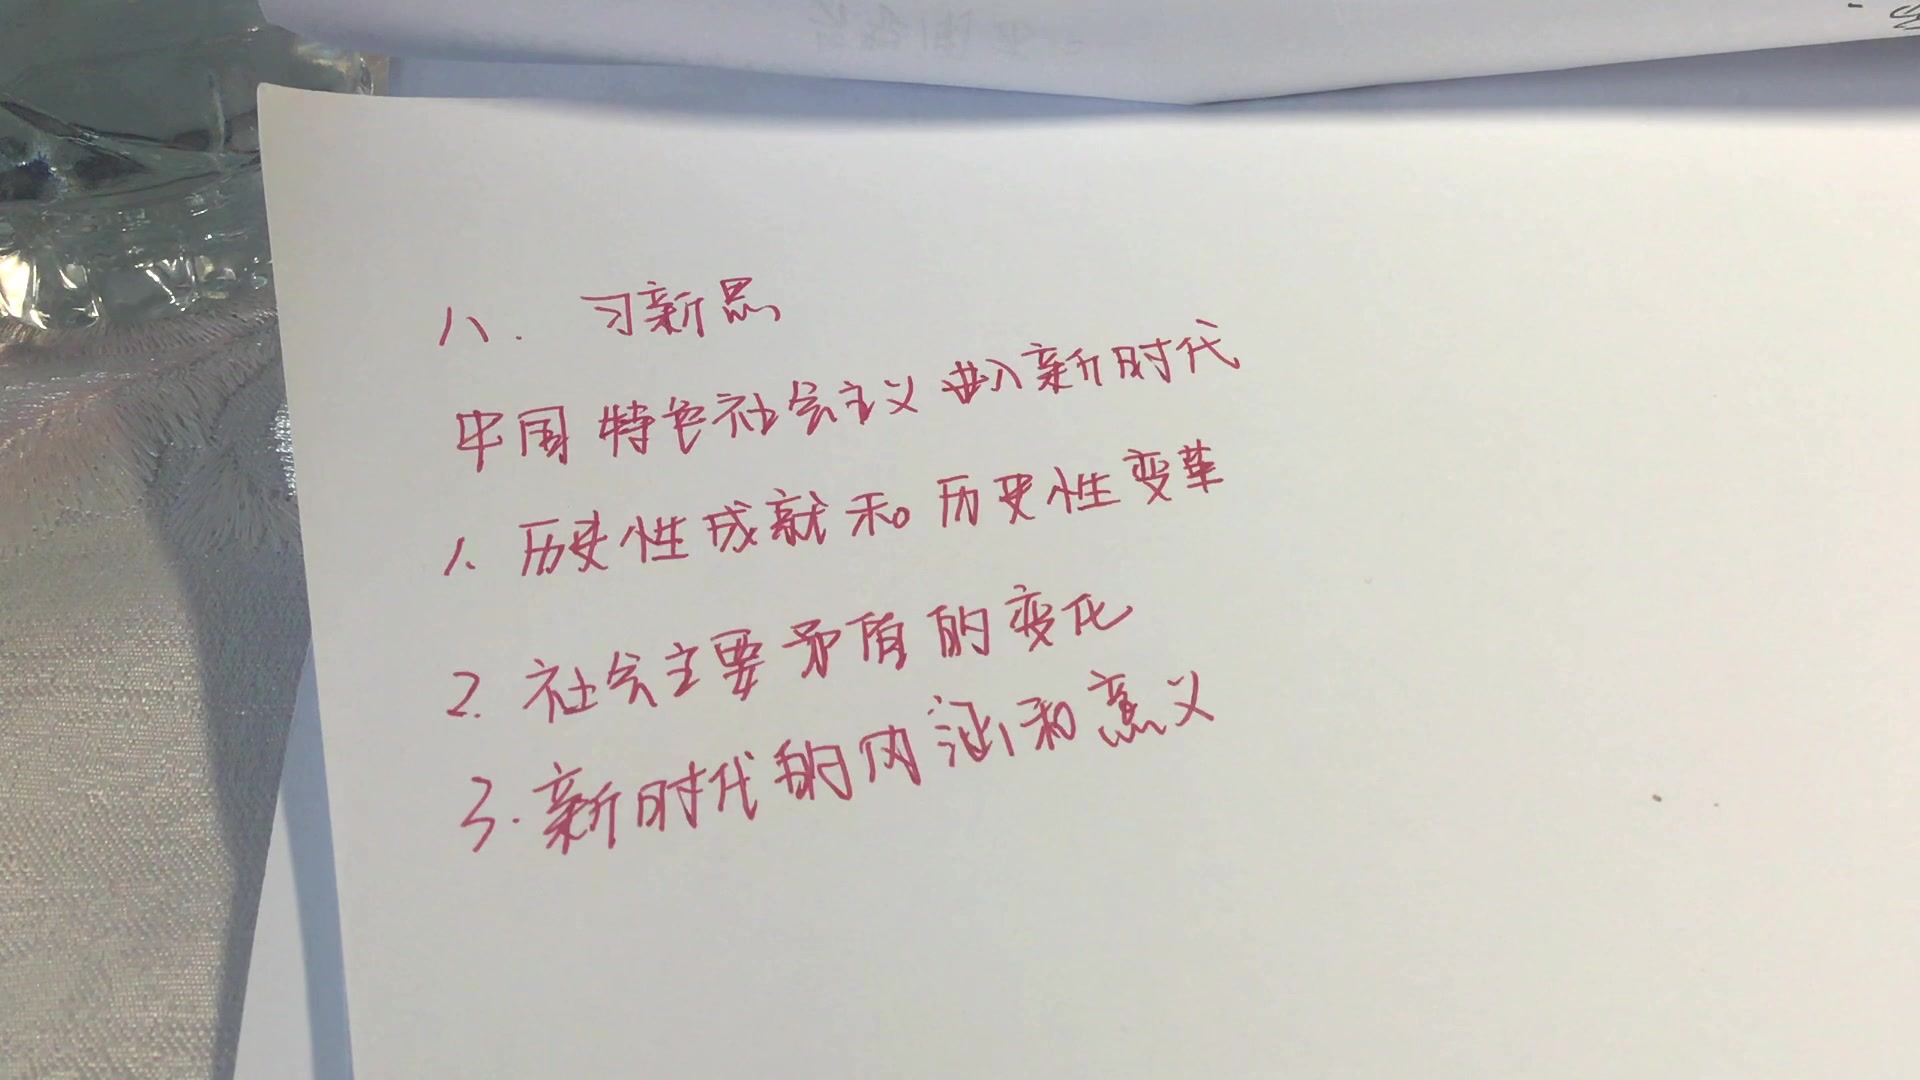 八. 习新思
中国特色社会主义进入新时代
1. 历史性成就和历史性变革
2. 社会主要矛盾的变化
3. 新时代的内涵和意义